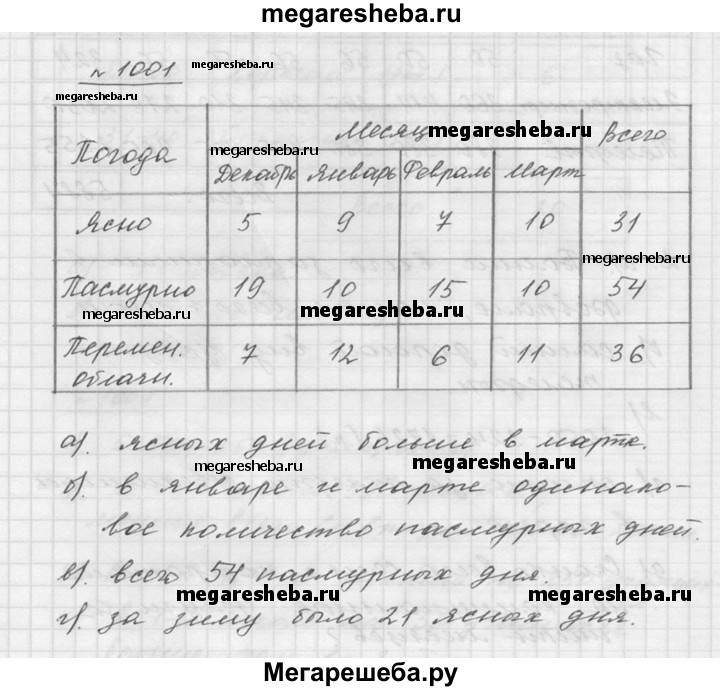 megaresheba.ru
№ 1001 megaresheba.ru
megaresheba.ru
Погода Месяц Всего
megaresheba.ru megaresheba.ru
Декабрь Январь Февраль Март
Ясно 5 9 7 10 31
megaresheba.ru
Пасмурно 19 10 15 10 54
megaresheba.ru megaresheba.ru
Перемен. облачн. 7 12 6 11 36
а). ясных дней больше в марте.
megaresheba.ru megaresheba.ru
б). в январе и марте одинако-
вое количество пасмурных дней.
в). всего 54 пасмурных дня.
megaresheba.ru megaresheba.ru
г). за зиму было 21 ясных дня.
Мегарешеба.ру